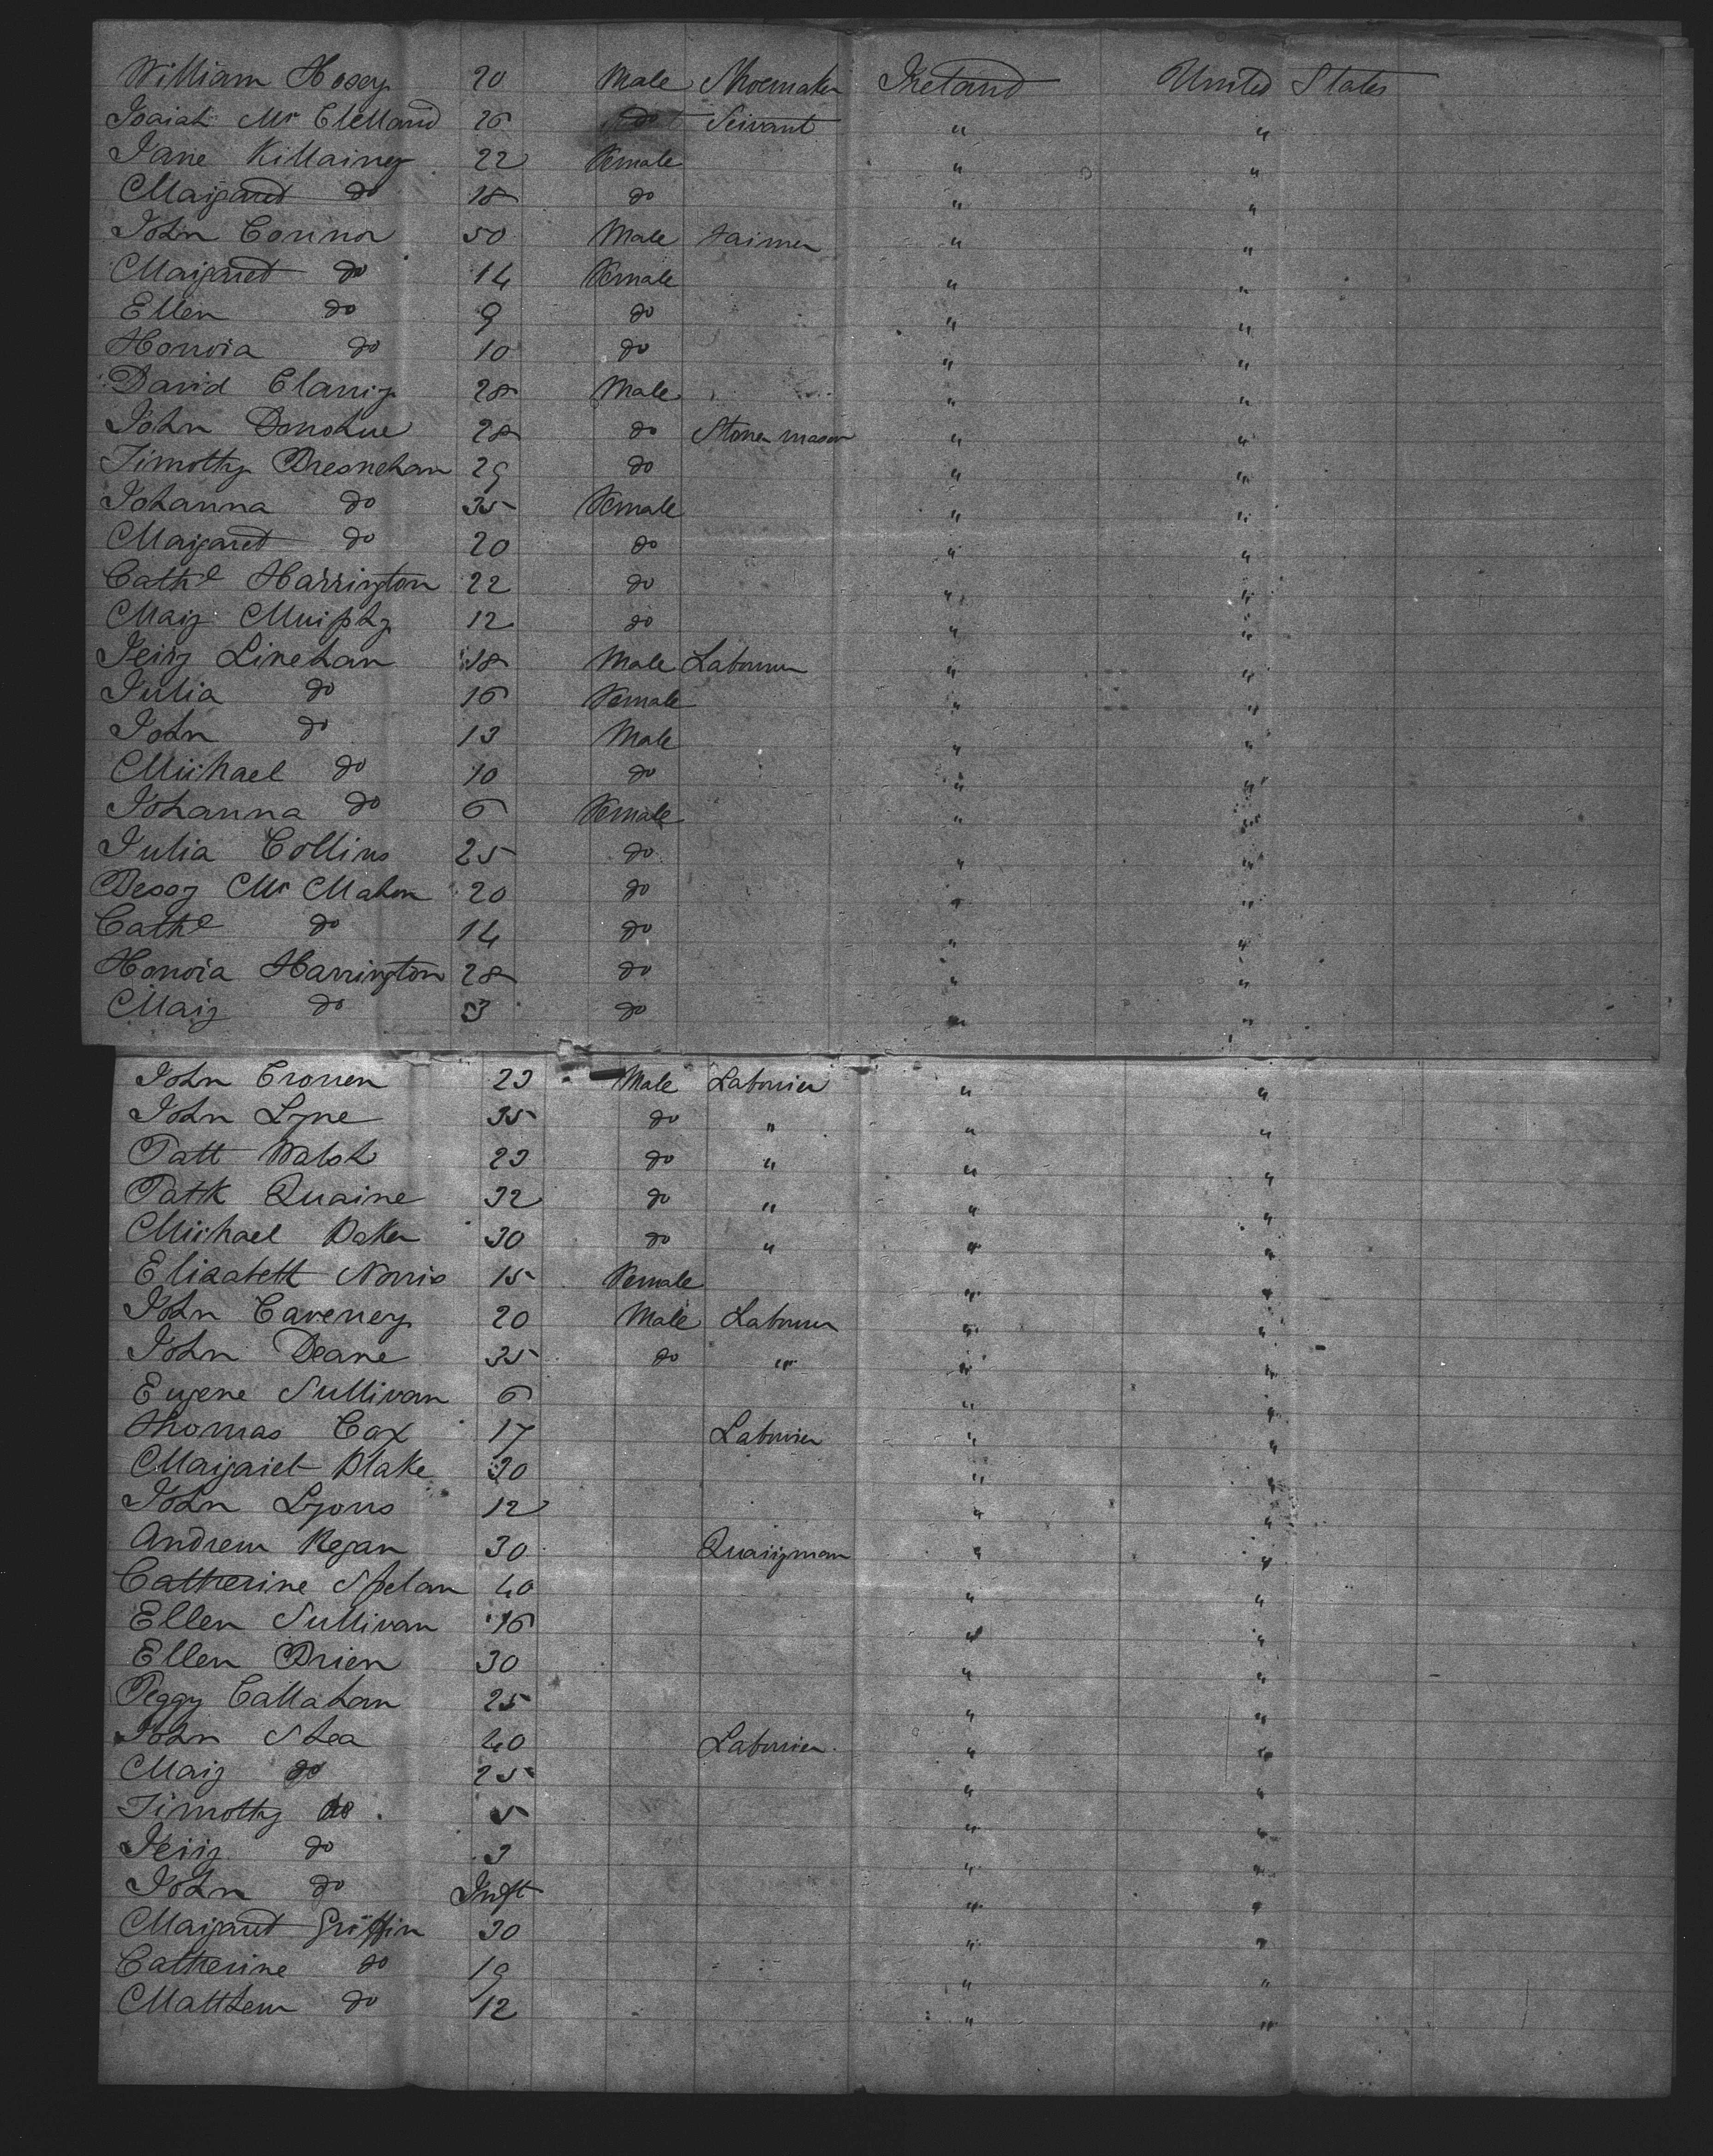 William Hosey 20 Male Shoemaker Ireland United States
Isaiah Mc Clelland 26 do Servant " "
Jane Killainey 22 Female " "
Margaret do 18 do " "
John Connor 50 Male Farmer " "
Margaret do 14 Female " "
Ellen do 9 do " "
Honora do 10 do " "
David Clancy 28 Male " "
John Donohue 28 do Stone mason " "
Timothy Bresnehan 29 do " "
Johanna do 35 Female " "
Margaret do 20 do " "
Cathe Harrington 22 do " "
Mary Murphy 12 do " "
Jerry Linehan 18 Male Labourer " "
Julia do 16 Female " "
John do 13 Male " "
Michael do 10 do " "
Johanna do 6 Female " "
Julia Collins 25 do " "
Bessy Mc Mahon 20 do " "
Cathe do 14 do " "
Honora Harrington 28 do " "
Mary do 3 do " "
John Cronen 23 Male Labourer " "
John Lyne 35 do " " "
Patt Walsh 23 do " " "
Patk Quaine 32 do " " "
Michael Baker 30 do " " "
Elizabeth Norris 15 Female " "
John Caveney 20 Male Labourer " "
John Deane 35 do " " "
Eugene Sullivan 6 " "
Thomas Cox 17 Labourer " "
Margaret Blake 30 " "
John Lyons 12 " "
Andrew Regan 30 Quarryman " "
Catherine Spelan 40 " "
Ellen Sullivan 16 " "
Ellen Brien 30 " "
Peggy Callahan 25 " "
John Shea 40 Labourer " "
Mary do 25 " "
Timothy do 5 " "
Jerry do 3 " "
John do Inft " "
Margaret Griffin 30 " "
Catherine do 19 " "
Matthew do 12 " "